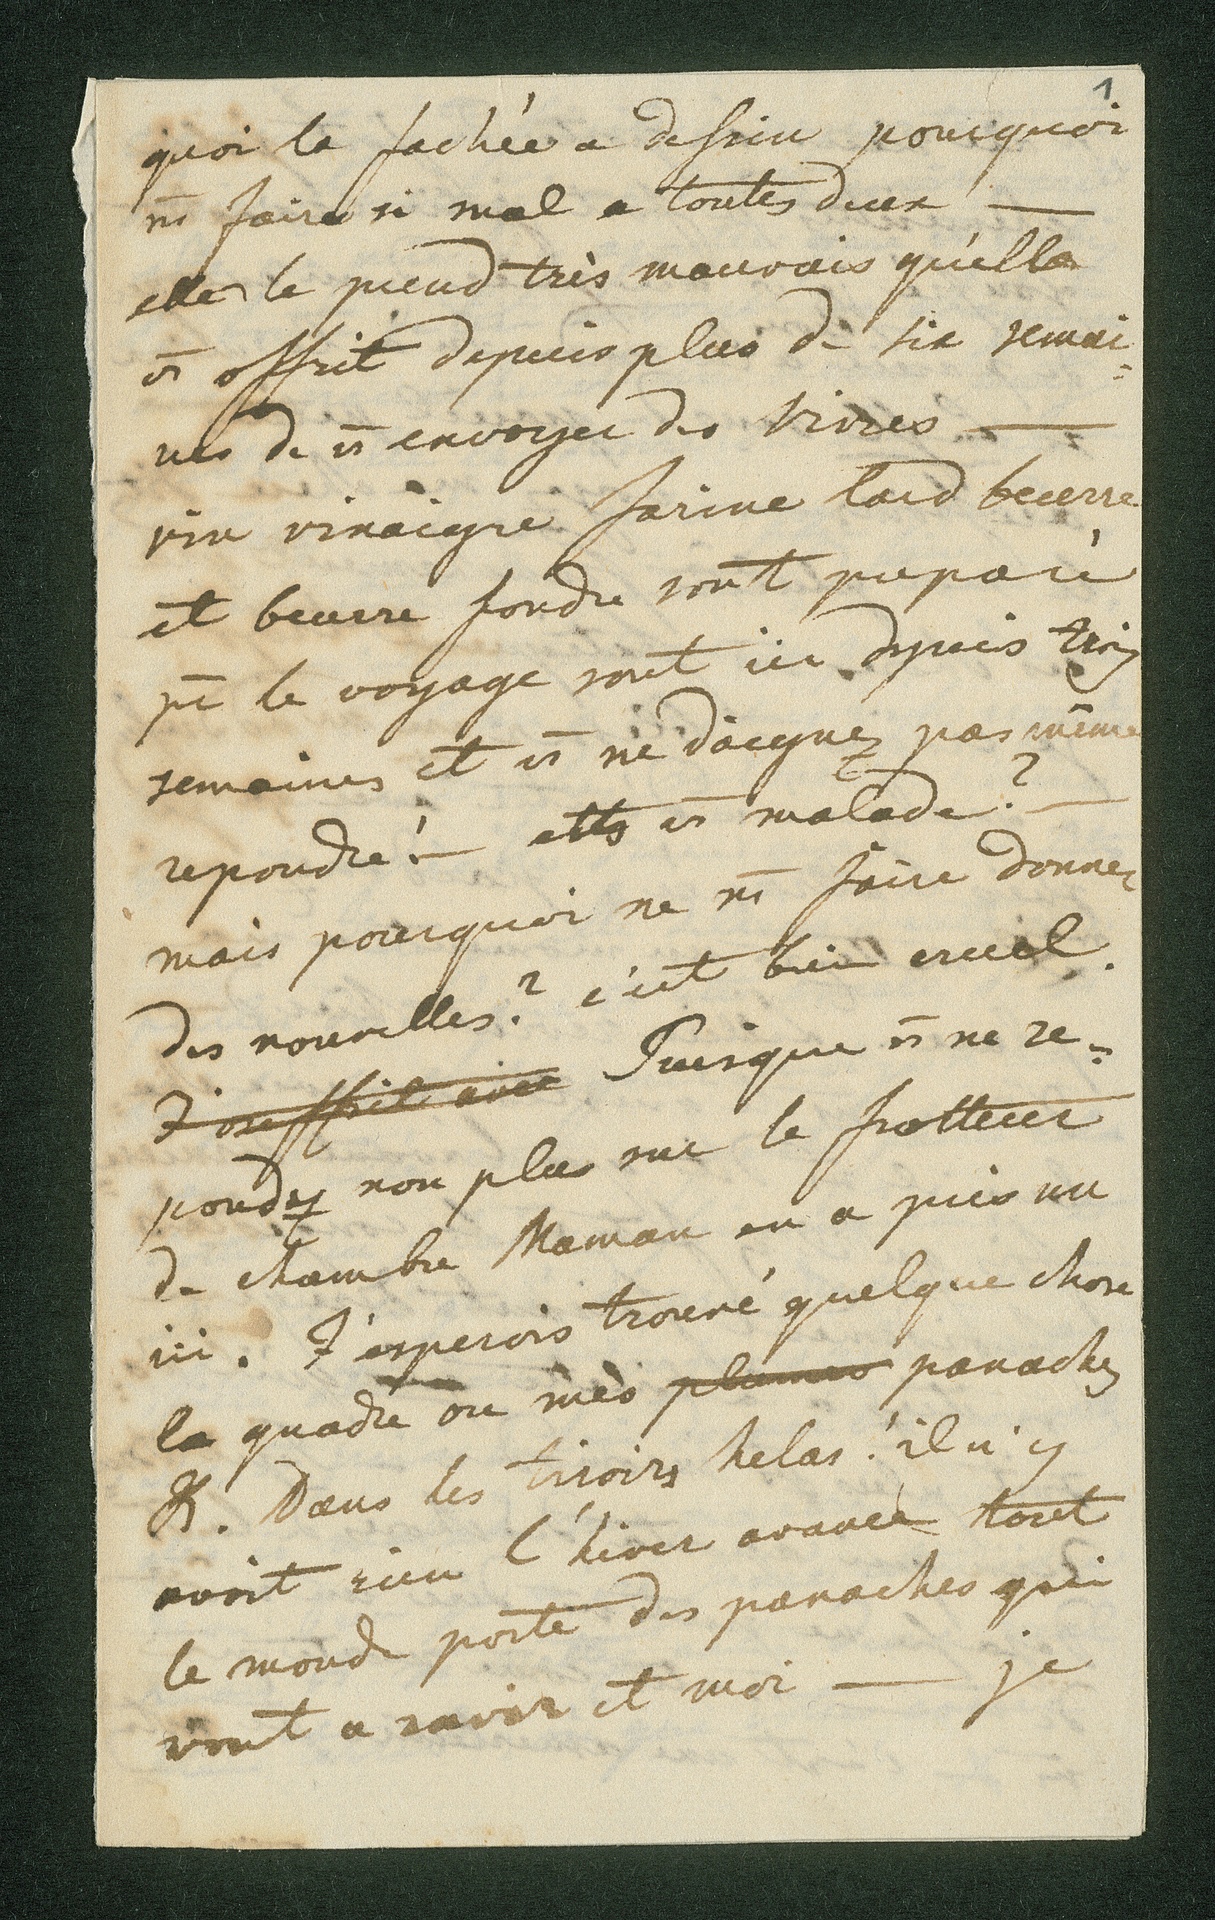 1
quoi la fachée a dessein pourquoi
ns faire si mal a toutes deux —
elle le prend très mauvais qu'elle
vs offrit depuis plus de six semai=
nes de vs envoyer des vivres —
vin vinaigre farine lard beurre
et beurre fondre sont preparé
pr le voyage sont ici depuis trois
semaines et vs ne daignez pas même
repondre! — etes vs malade? —
mais pourquoi ne ns faire donner
des nouvelles? c'est bien cruel.
J'ouffrit avec Puisque vs ne re=
pondez non plus sur le frotteur
de chambre Maman en a pris un
ici. J'esperois trouvé quelque chose
la quadre ou mes plumes panaches
K. Dans les tiroirs helas! il n'y
avoit rien l'hiver avance tout
le monde porte des panaches qui
vont a ravir et moi — je